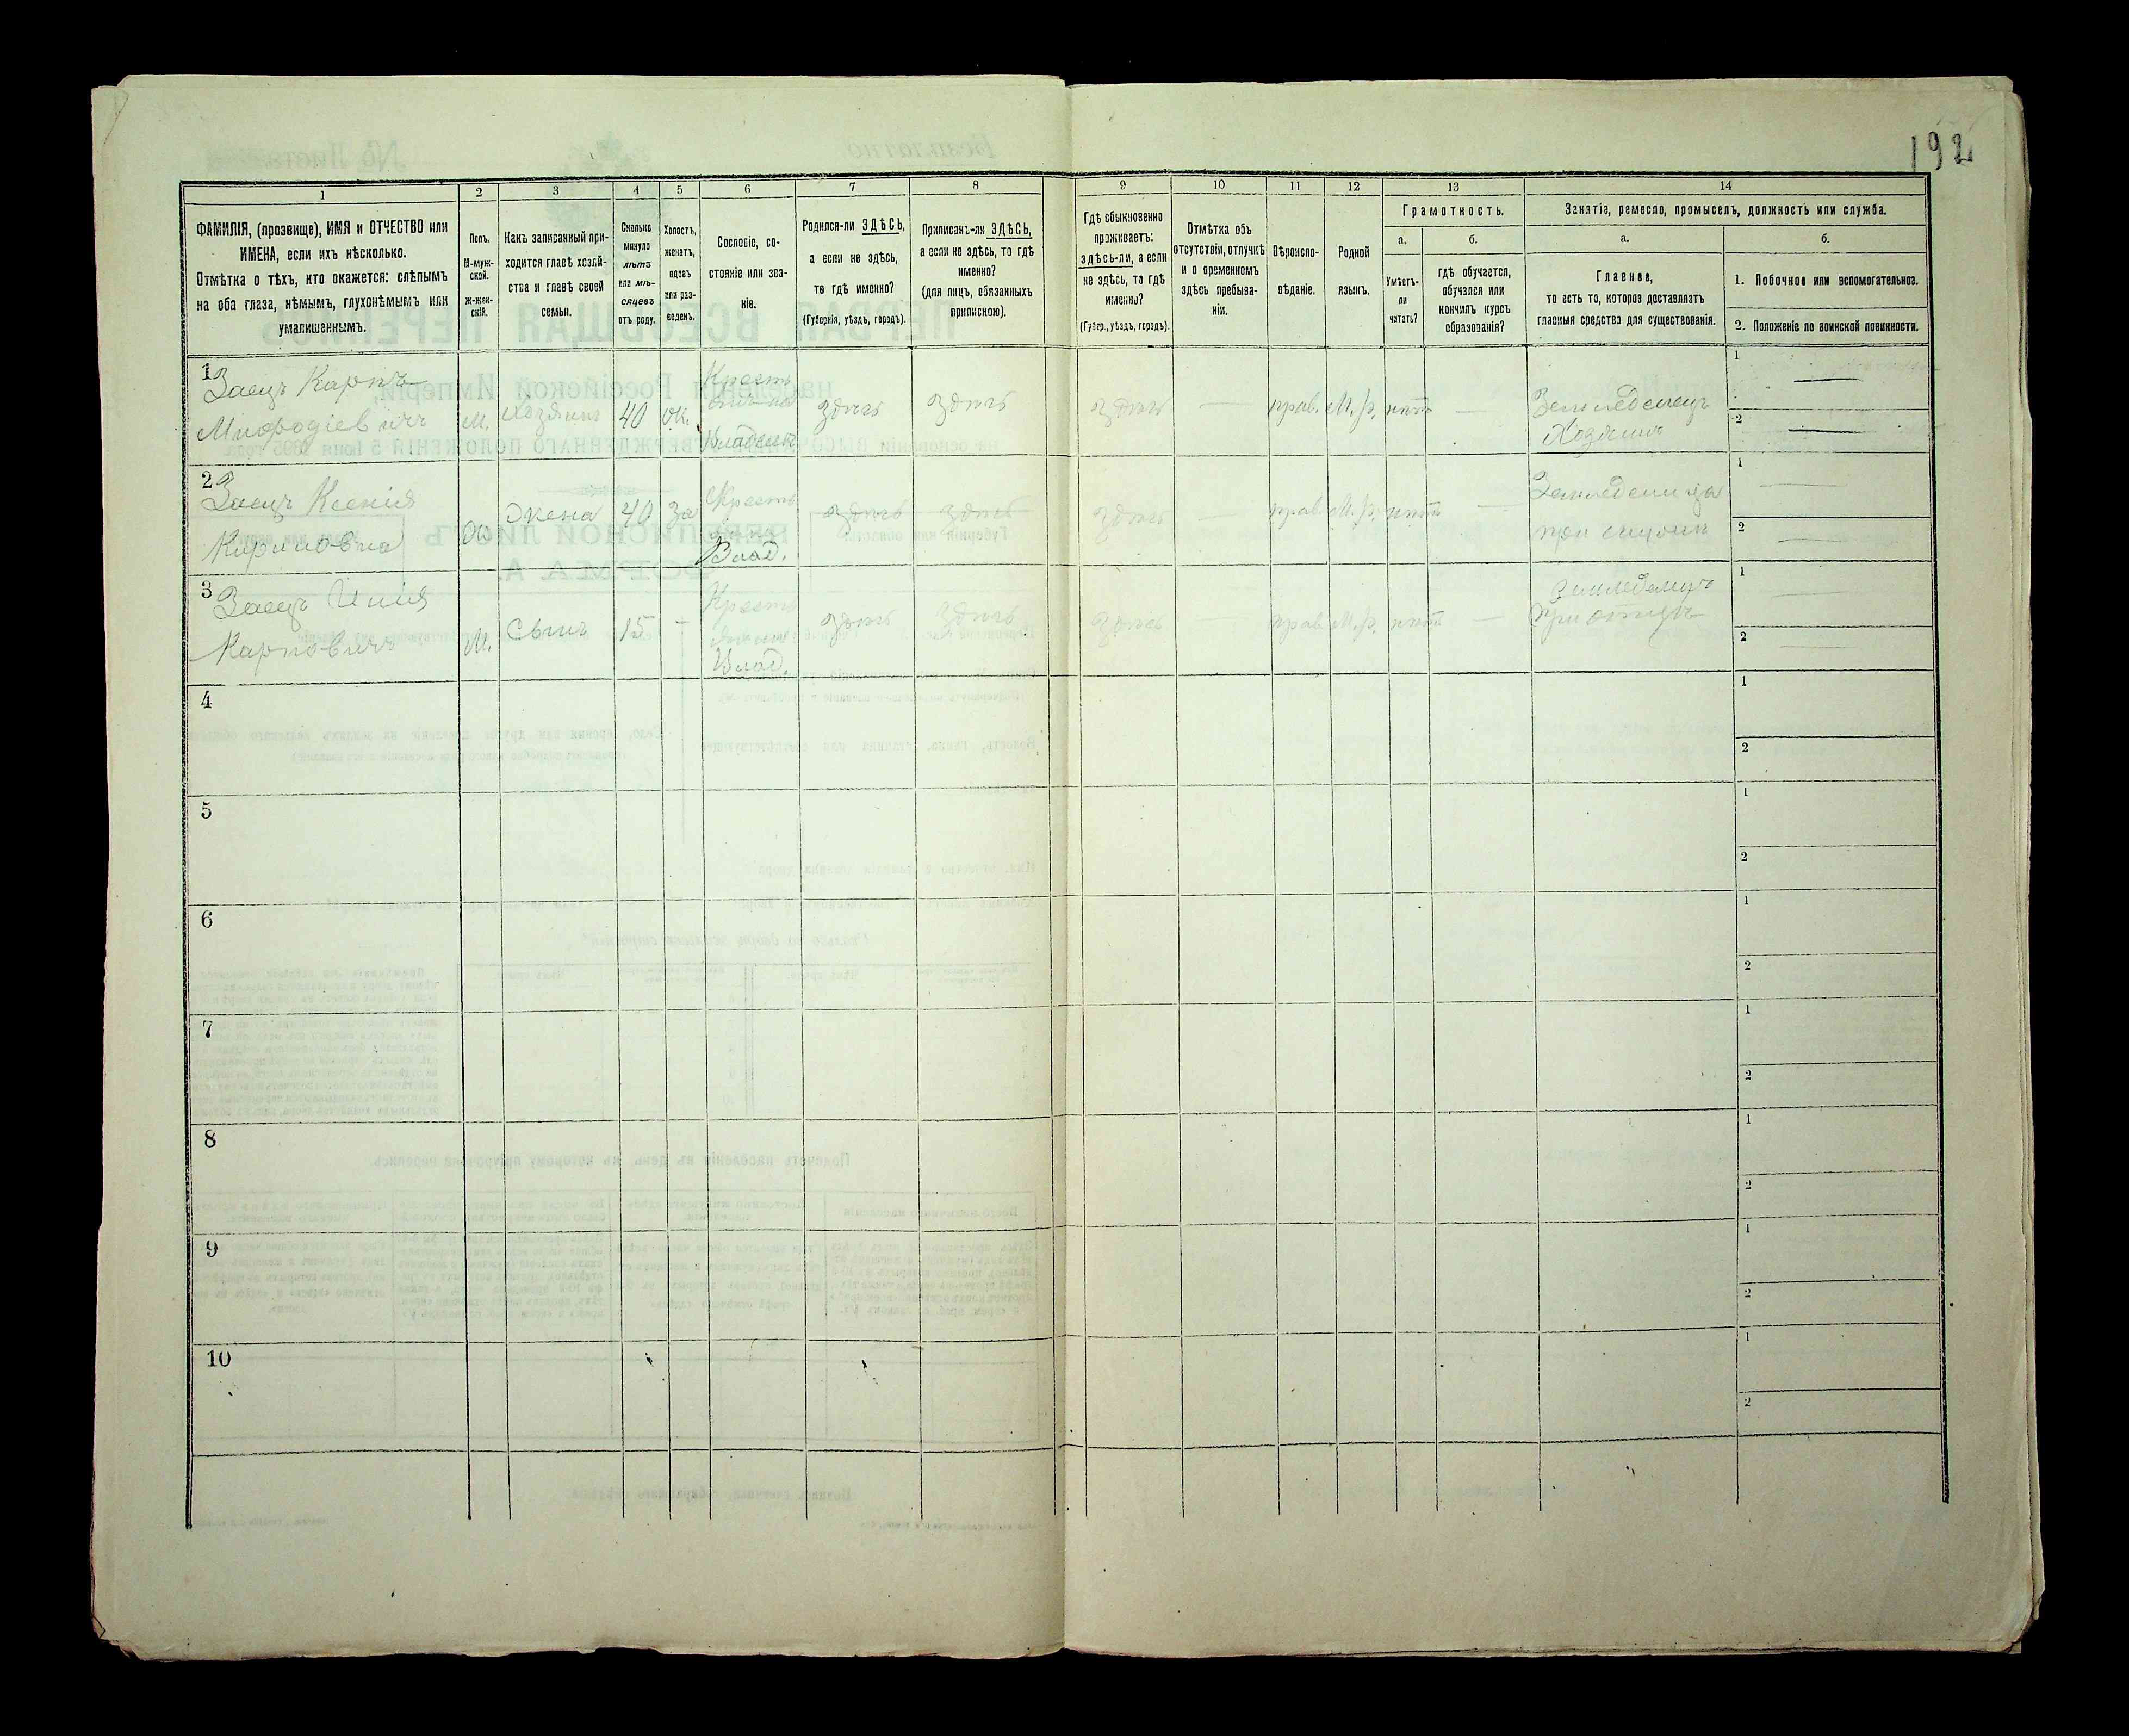 192
1
2
3
4
5
6
7
8
9
10
11
12
13
14
ФАМИЛІЯ, (прозвище), ИМЯ и ОТЧЕСТВО или
ИМЕНА, если ихъ нѣсколько.
Отмѣтка о тѣхъ, кто окажется: слѣпымъ
на оба глаза, нѣмымъ, глухонѣмымъ или
умалишеннымъ.
Полъ.
М-муж-
ской.
Ж-жен-
скій.
Какъ записанный при-
ходится главѣ хозяй-
ства и главѣ своей
семьи.
Сколько
минуло
лѣтъ
или мѣ-
сяцевъ
отъ роду.
Холостъ,
женатъ,
вдовъ
или раз-
веденъ.
Сословіе, со-
стояніе или зва-
ніе.
Родился-ли ЗДѢСЬ,
а если не здѣсь,
то гдѣ именно?
(Губернія, уѣздъ, городъ).
Приписанъ-ли ЗДѢСЬ,
а если не здѣсь, то гдѣ
именно?
(для лицъ, обязанныхъ
припискою).
Гдѣ обыкновенно
проживаетъ:
здѣсь-ли, а если
не здѣсь, то гдѣ
именно?
(Губер., уѣздъ, городъ).
Отмѣтка объ
отсутствіи, отлучкѣ
и о временномъ
здѣсь пребыва-
ніи.
Вѣроиспо-
вѣданіе.
Родной
языкъ.
Грамотность.
а.
Умѣетъ-
ли
читать?
б.
гдѣ обучается,
обучался или
кончилъ курсъ
образованія?
Занятіе, ремесло, промыселъ, должность или служба.
а.
Главное,
то есть то, которое доставляетъ
главныя средства для существованія.
б.
1. Побочное или вспомогательное.
2. Положеніе по воинской повинности.
1
Заецъ Карпъ
М.
Хозяинъ
40
Крестья
здѣсь
здѣсь
здѣсь
—
прав.
М. р.
нѣтъ
—
Земледѣлецъ
Хозяинъ
1 —
2 —
2
Заецъ Ксенія
Ж
Жена
40
За
Крестья
Влад.
здѣсь
здѣсь
здѣсь
—
прав.
М. р.
нѣтъ
—
1 —
2 —
3
Заецъ
Карповичъ
М.
Сынъ
15
—
Крестья
Влад.
здѣсь
здѣсь
здѣсь
—
прав.
М. р.
нѣтъ
—
Земледѣлецъ
При отцѣ
1 —
2 —
4
1
2
5
1
2
6
1
2
7
1
2
8
1
2
9
1
2
10
1
2